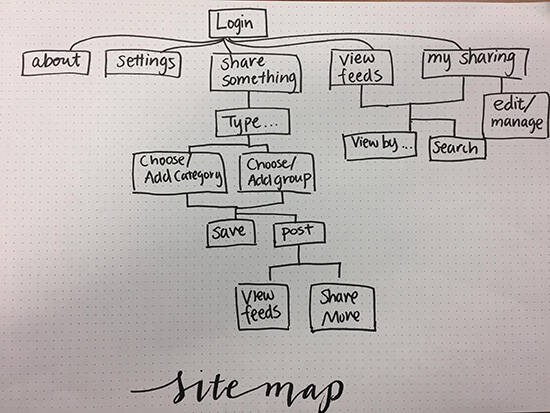 Login
about
settings
share
something
view
feeds
my sharing
edit/
manage
Type...
View by...
Search
Choose/
Add Category
Choose/
Add group
save
post
View
feeds
Share
More
site map